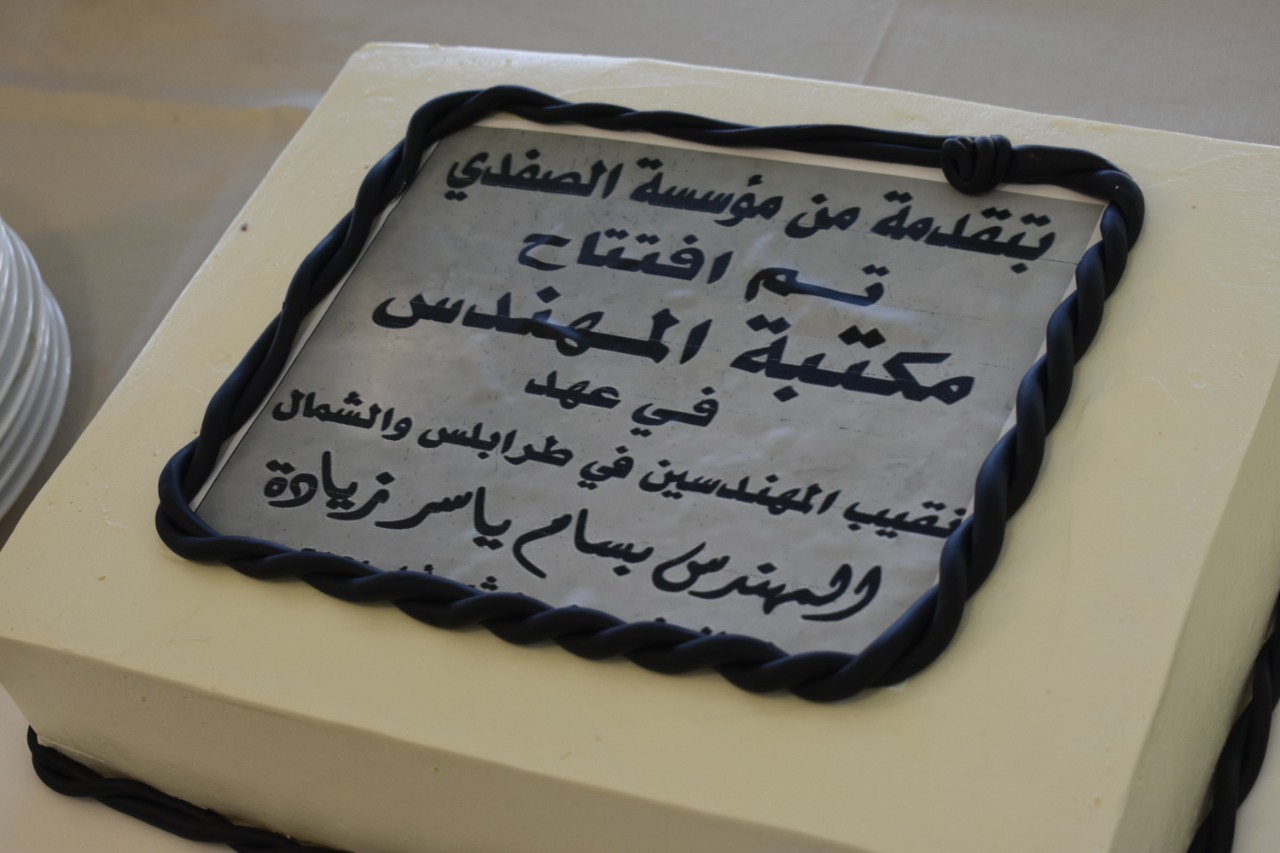 بتقدمة من مؤسسة الصفدي
تم افتتاح
مكتبة المهندس
في عهد
نقيب المهندسين في طرابلس والشمال
المهندس بسام ياسر زيادة